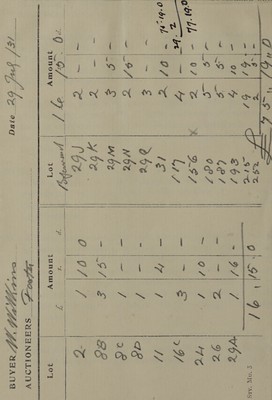 BUYER M. Watkins Date 29 July /31
AUCTIONEERS Foster
Lot Amount Lot Amount
£ s. d.
2 1 10 0 16 15 0
8B 3 15 - 29J 2 - -
8C 1 - - 29K 2 - -
8D 1 - - 29M 3 5 -
11 1 4 - 29N 2 15 -
16C 3 - - 29P 3 - -
24 1 10 - 31 2 10 -
26 2 - - 117 4 - -
29A 1 16 - X 156 2 10 -
16 . 15 . 0 180 5 5 -
187 5 5 -
193 4 10 -
215 19
252
£ 75 . 19 . 0
75 . 19 . 0
2
77 . 19 . 0